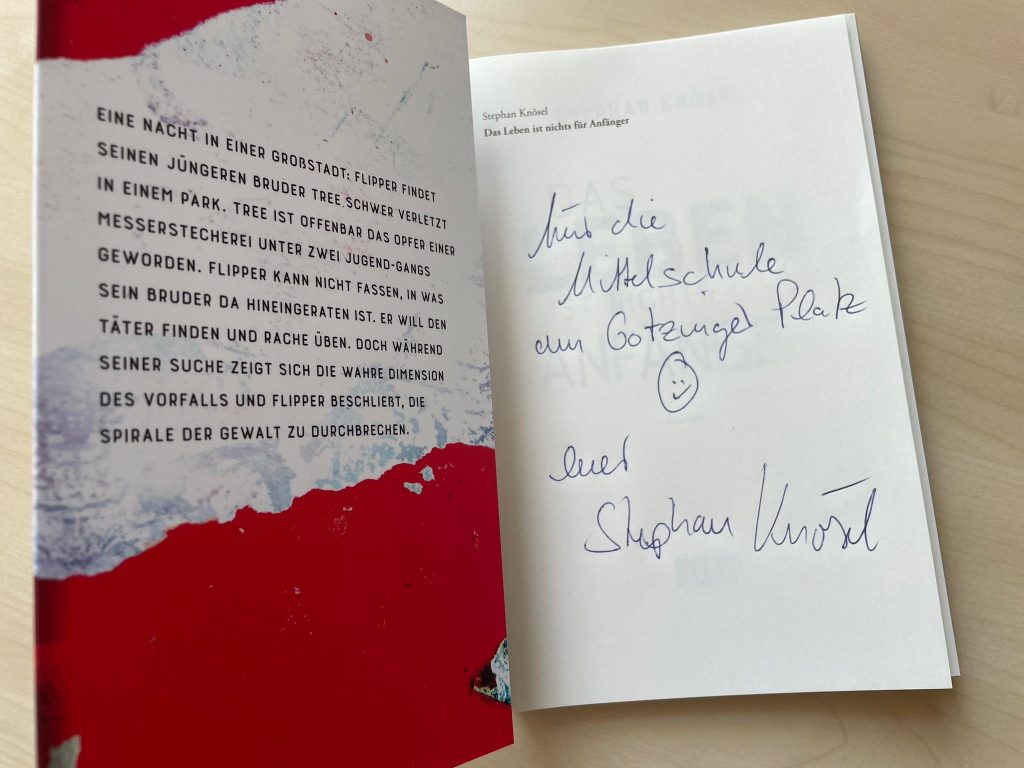 EINE NACHT IN EINER GROßSTADT: FLIPPER FINDET
SEINEN JÜNGEREN BRUDER TREE SCHWER VERLETZT
IN EINEM PARK. TREE IST OFFENBAR DAS OPFER EINER
MESSERSTECHEREI UNTER ZWEI JUGEND-GANGS
GEWORDEN. FLIPPER KANN NICHT FASSEN, IN WAS
SEIN BRUDER DA HINEINGERATEN IST. ER WILL DEN
TÄTER FINDEN UND RACHE ÜBEN. DOCH WÄHREND
SEINER SUCHE ZEIGT SICH DIE WAHRE DIMENSION
DES VORFALLS UND FLIPPER BESCHLIEßT, DIE
SPIRALE DER GEWALT ZU DURCHBRECHEN.
Stephan Knösel
Das Leben ist nichts für Anfänger
für die
Mittelschule
am Gotzinger Platz
euer
Stephan Knösel